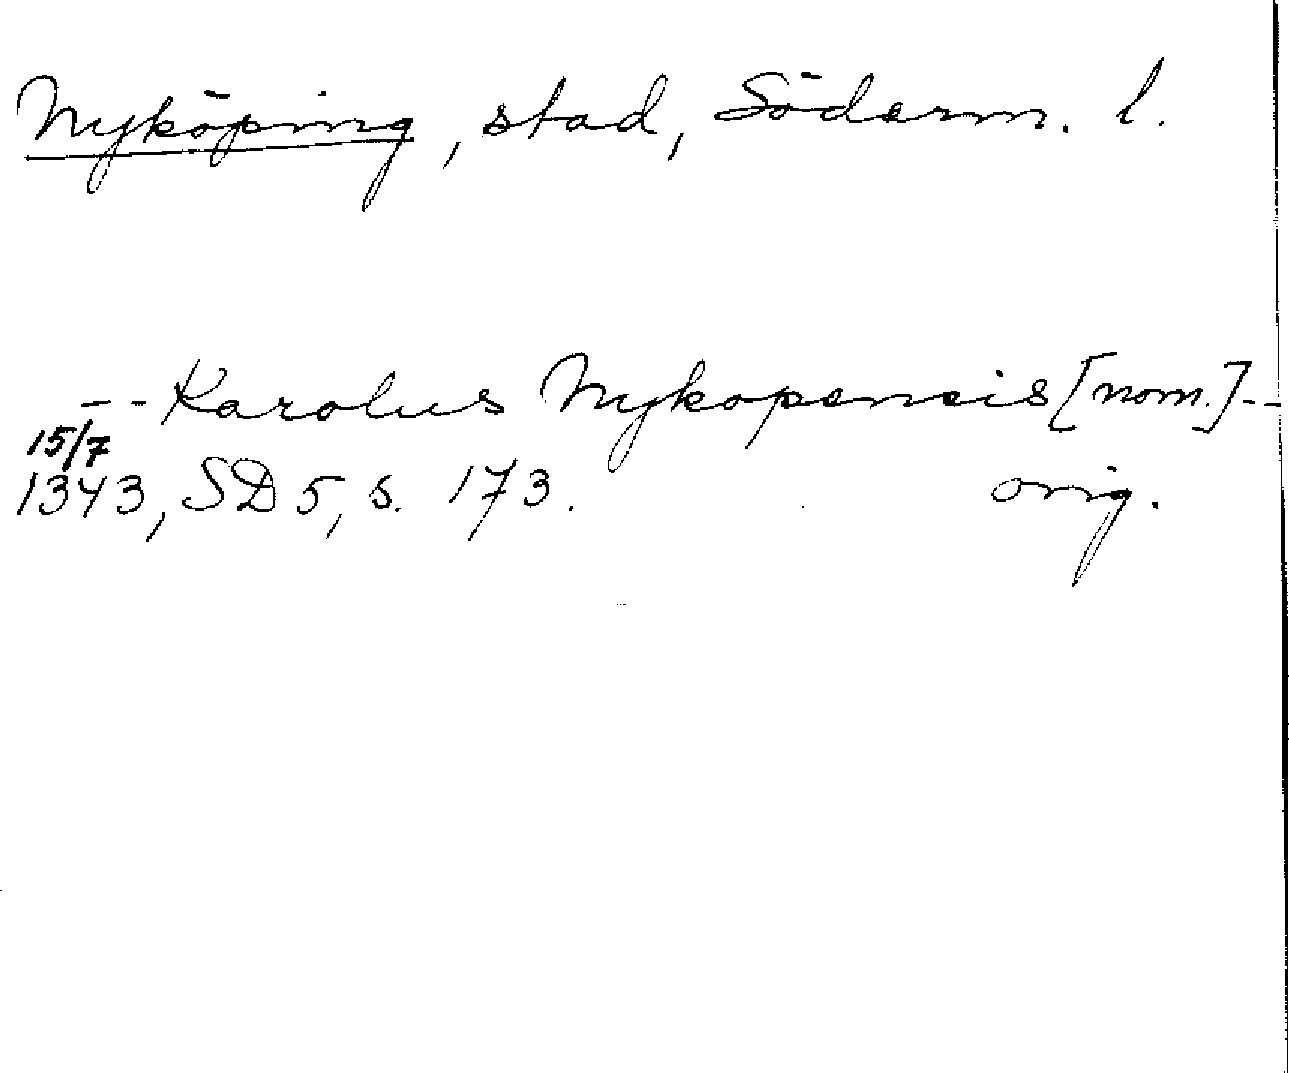 Nyköping, stad, Söderm. l.
-- Karolus Nykopensis [nom.] --
15/7
1343, SD 5, s. 173. orig.